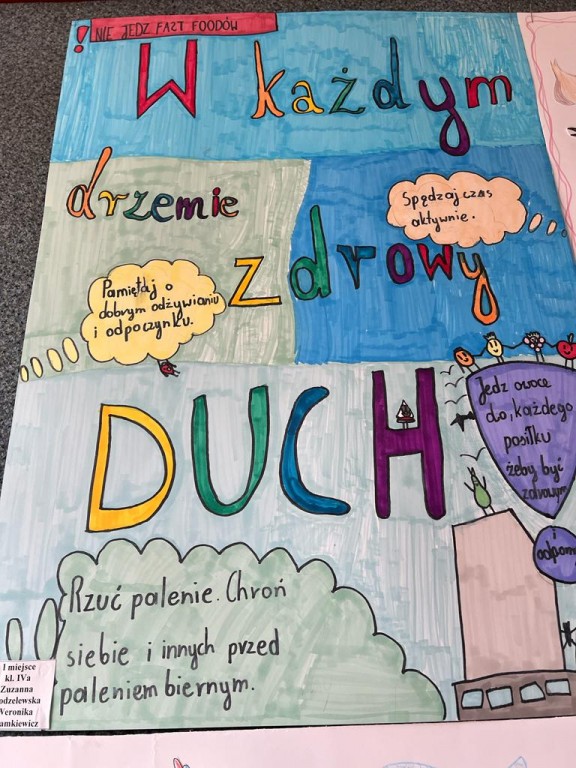 ! NIE JEDZ FAZT FOODÓW
W każdym
drzemie
zdrowy
Spędzaj czas
aktywnie.
Pamiętaj o
dobrym odżywianiu
i odpoczynku.
DUCH
Jedz owoce
do, każdego
posiłku
żeby być
zdrowym
i
odporn
Rzuć palenie. Chroń
siebie i innych przed
paleniem biernym.
I miejsce
kl. IVa
Zuzanna
odzelewska
Weronika
amkiewicz